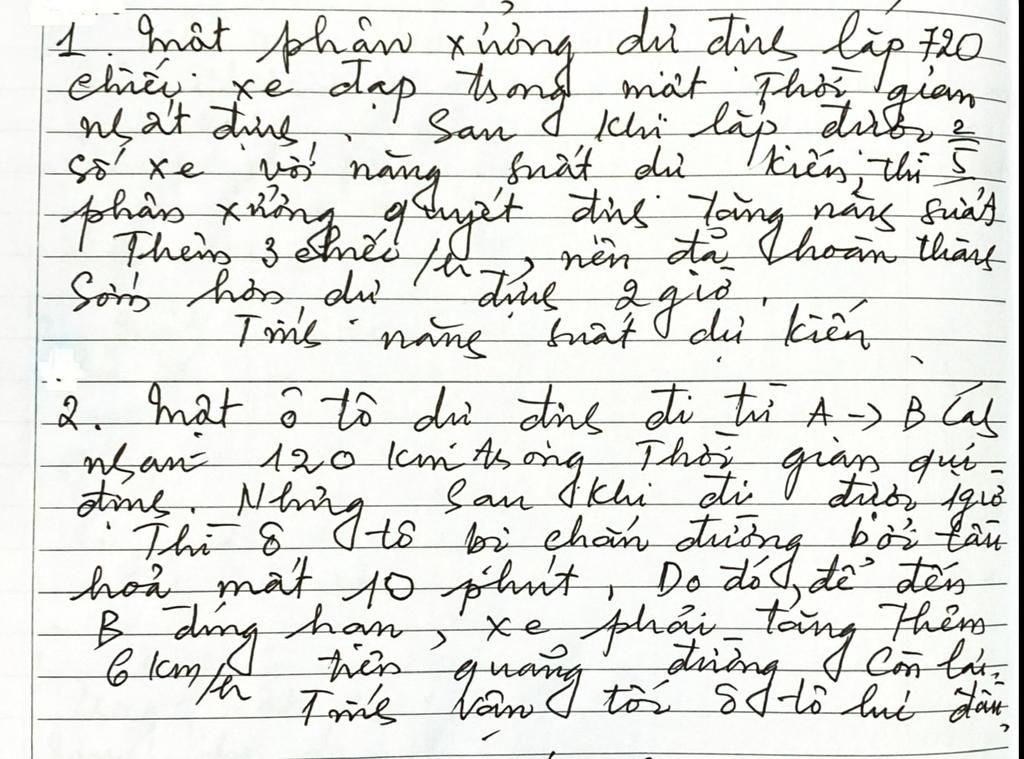 1. Một phân xưởng dự định lắp 720
chiếc xe đạp trong một thời gian
nhất định. Sau khi lắp được 2/5
số xe với năng suất dự kiến, thì
phân xưởng quyết định tăng năng suất
thêm 3 chiếc/h, nên đã hoàn thành
sớm hơn dự định 2 giờ.
Tính năng suất dự kiến
2. Một ô tô dự định đi từ A -> B cách
nhau 120 km trong thời gian qui
định. Nhưng sau khi đi được 1 giờ
thì ô tô bị chắn đường bởi tàu
hoả mất 10 phút, Do đó, để đến
B đúng hạn, xe phải tăng thêm
6 km/h trên quãng đường còn lại.
Tính vận tốc ô tô lúc đầu.